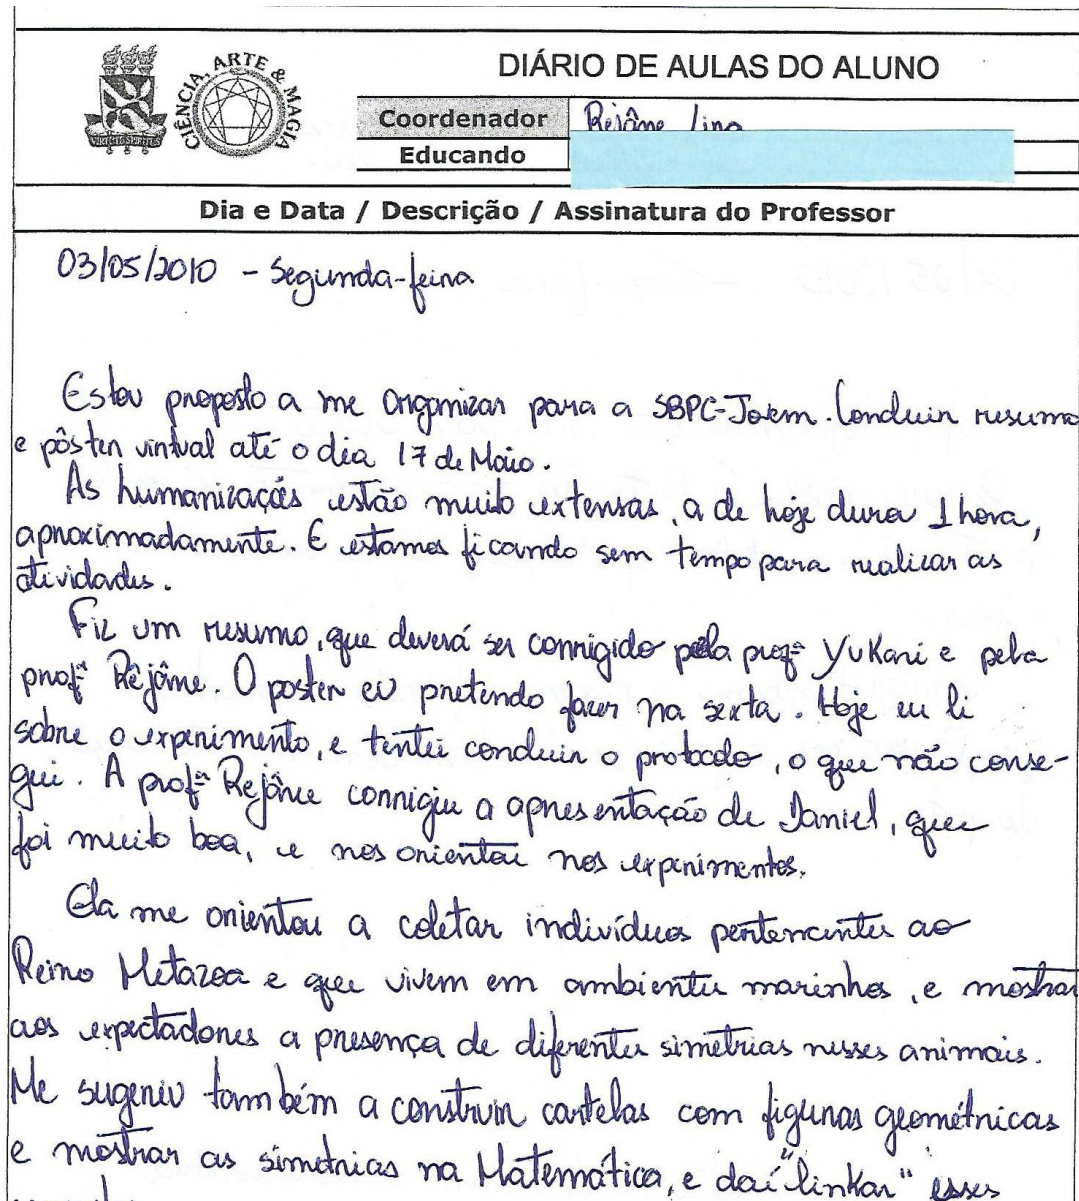 CIÊNCIA, ARTE & MAGIA
DIÁRIO DE AULAS DO ALUNO
Coordenador Rejâne Lira
Educando
Dia e Data / Descrição / Assinatura do Professor
03/05/2010 - Segunda-feira
Estou proposto a me organizar para a SBPC-Jovem. Concluir resumo
e pôster virtual até o dia 17 de Maio.
As humanizações estão muito extensas, a de hoje durou 1 hora,
aproximadamente. E estamos ficando sem tempo para realizar as
atividades.
Fiz um resumo, que deverá ser corrigido pela profª Yukari e pela
profª Rejâne. O poster eu pretendo fazer na sexta. Hoje eu li
sobre o experimento, e tentei concluir o protocolo, o que não conse-
gui. A profª Rejâne corrigiu a apresentação de Daniel, que
foi muito boa, e nos orientou nos experimentos.
Ela me orientou a coletar indivíduos pertencentes ao
Reino Metazoa e que vivem em ambientes marinhos, e mostrar
aos expectadores a presença de diferentes simetrias nesses animais.
Me sugeriu também a construir cartelas com figuras geométricas
e mostrar as simetrias na Matemática, e daí "linkar" esses